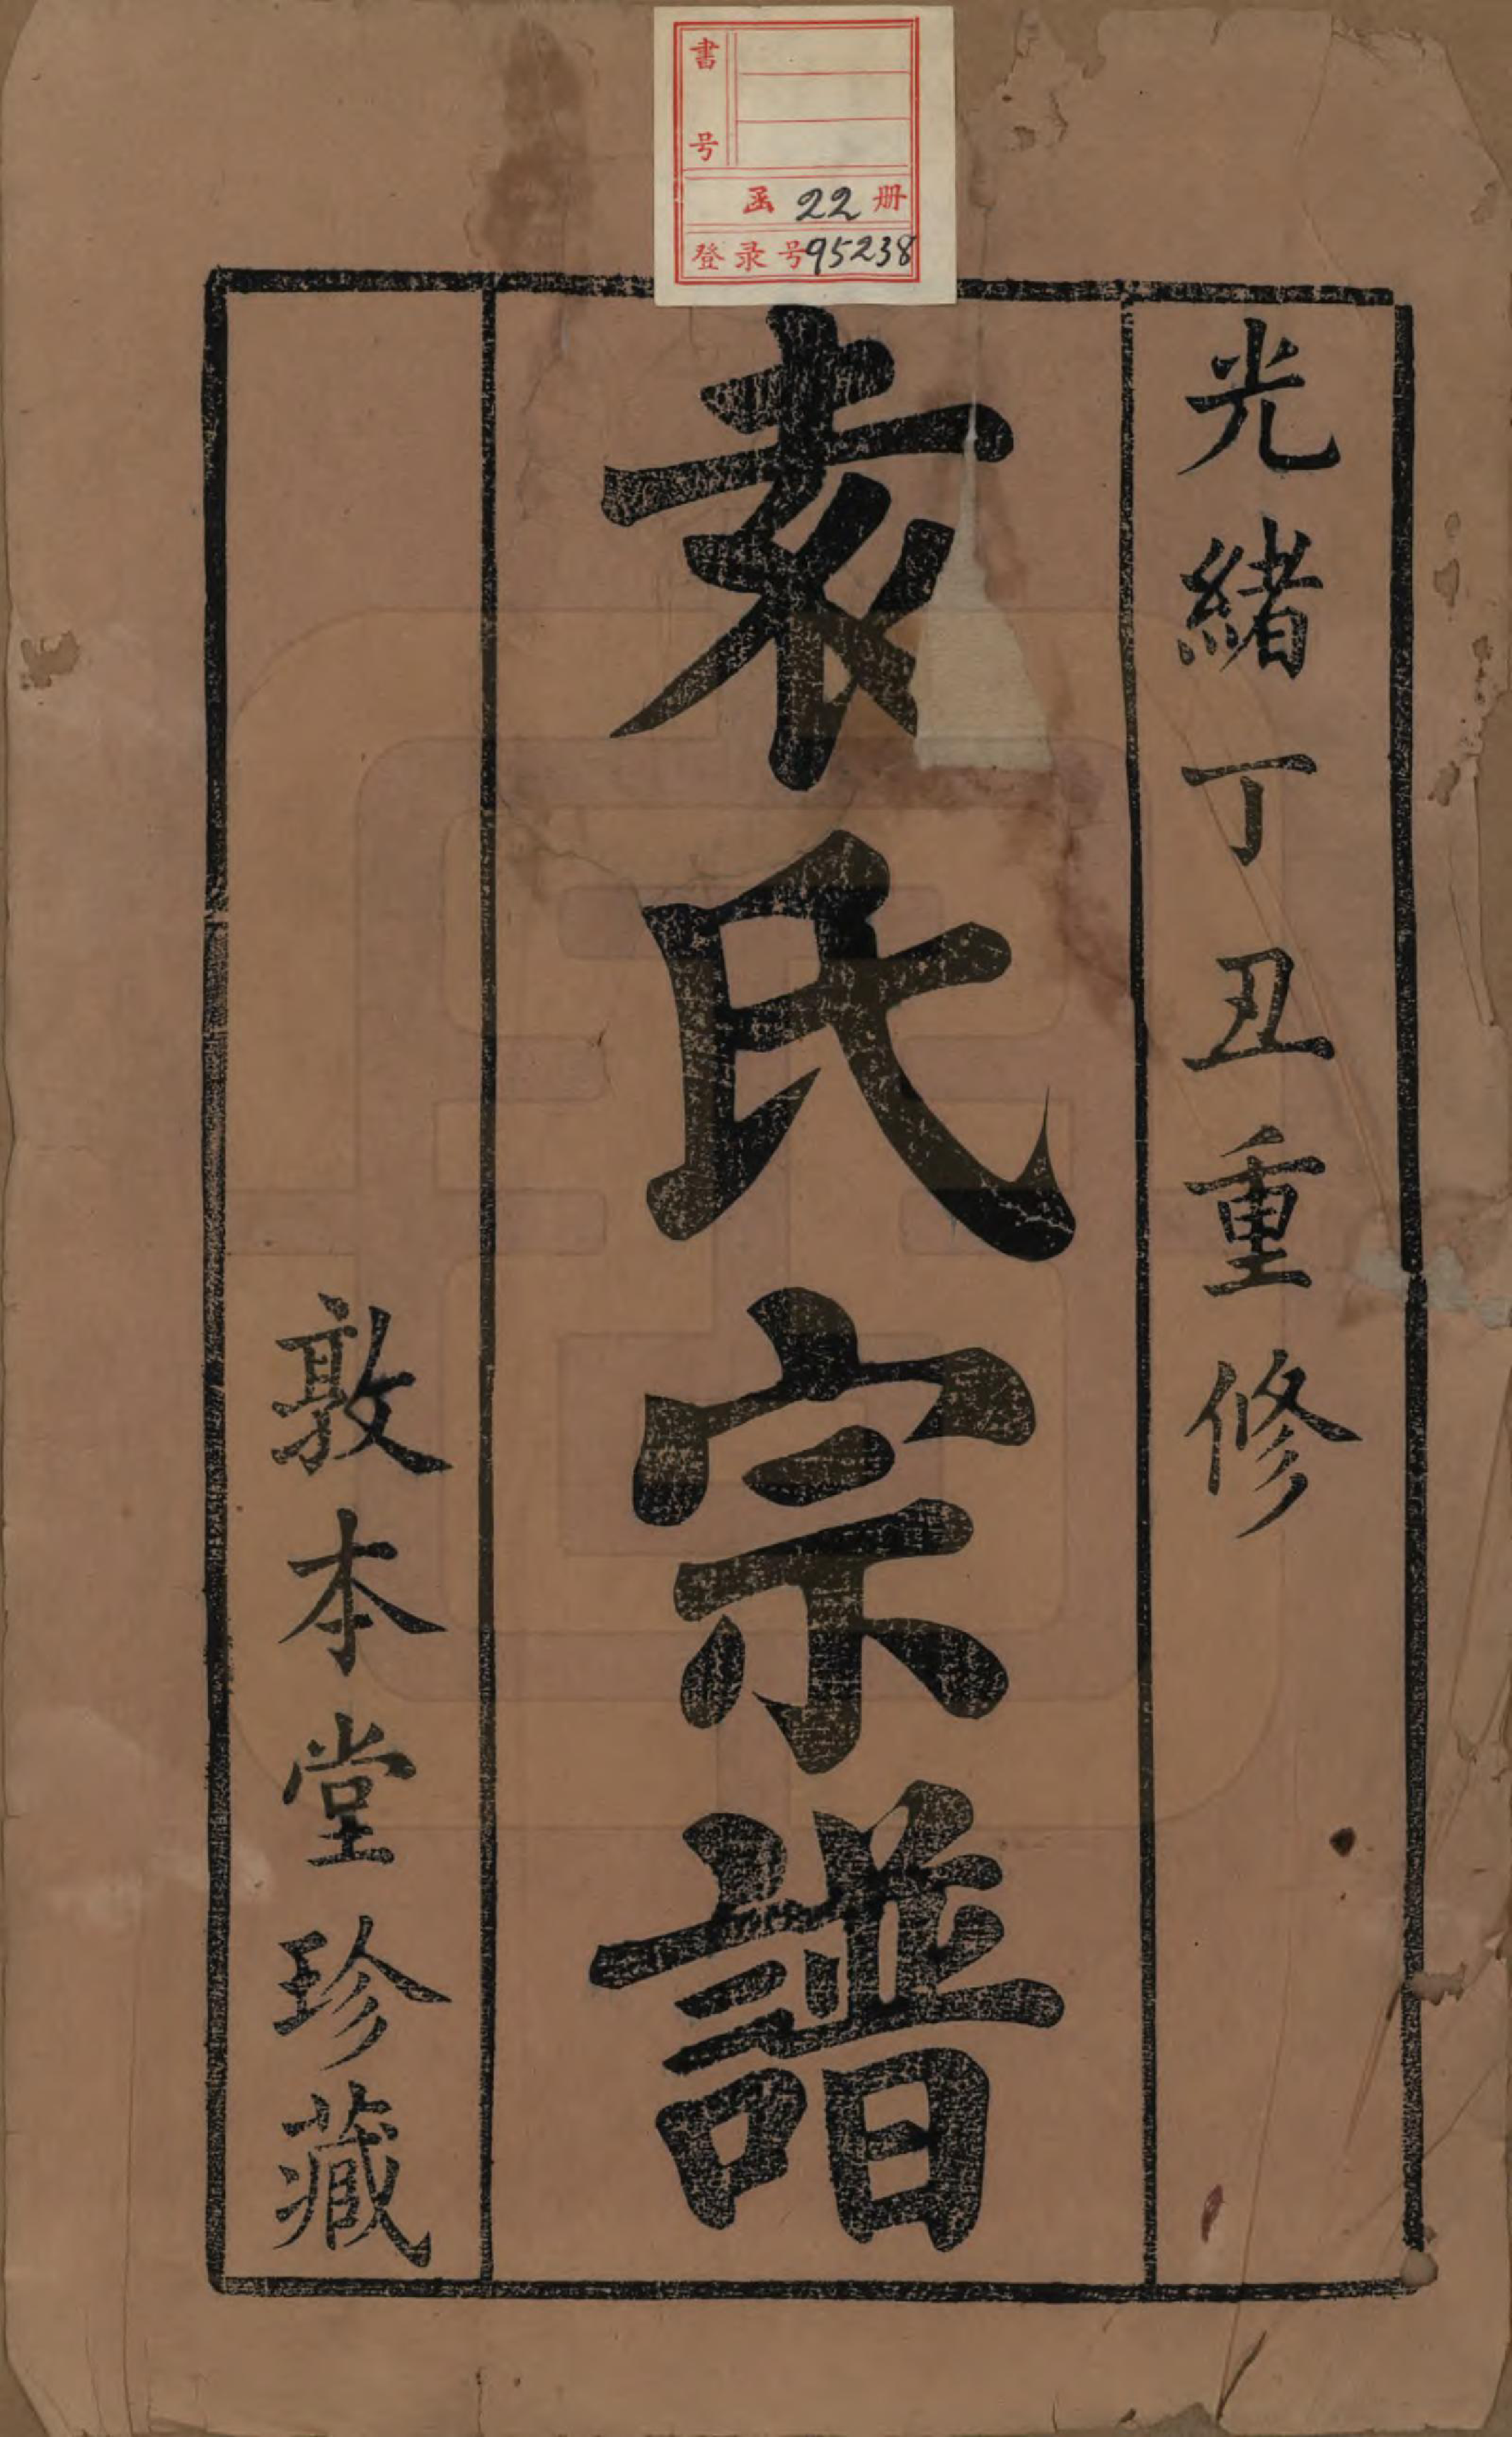 書号
函 22 册
登录号95238
光緒丁丑重修
袁氏宗譜
敦本堂珍藏